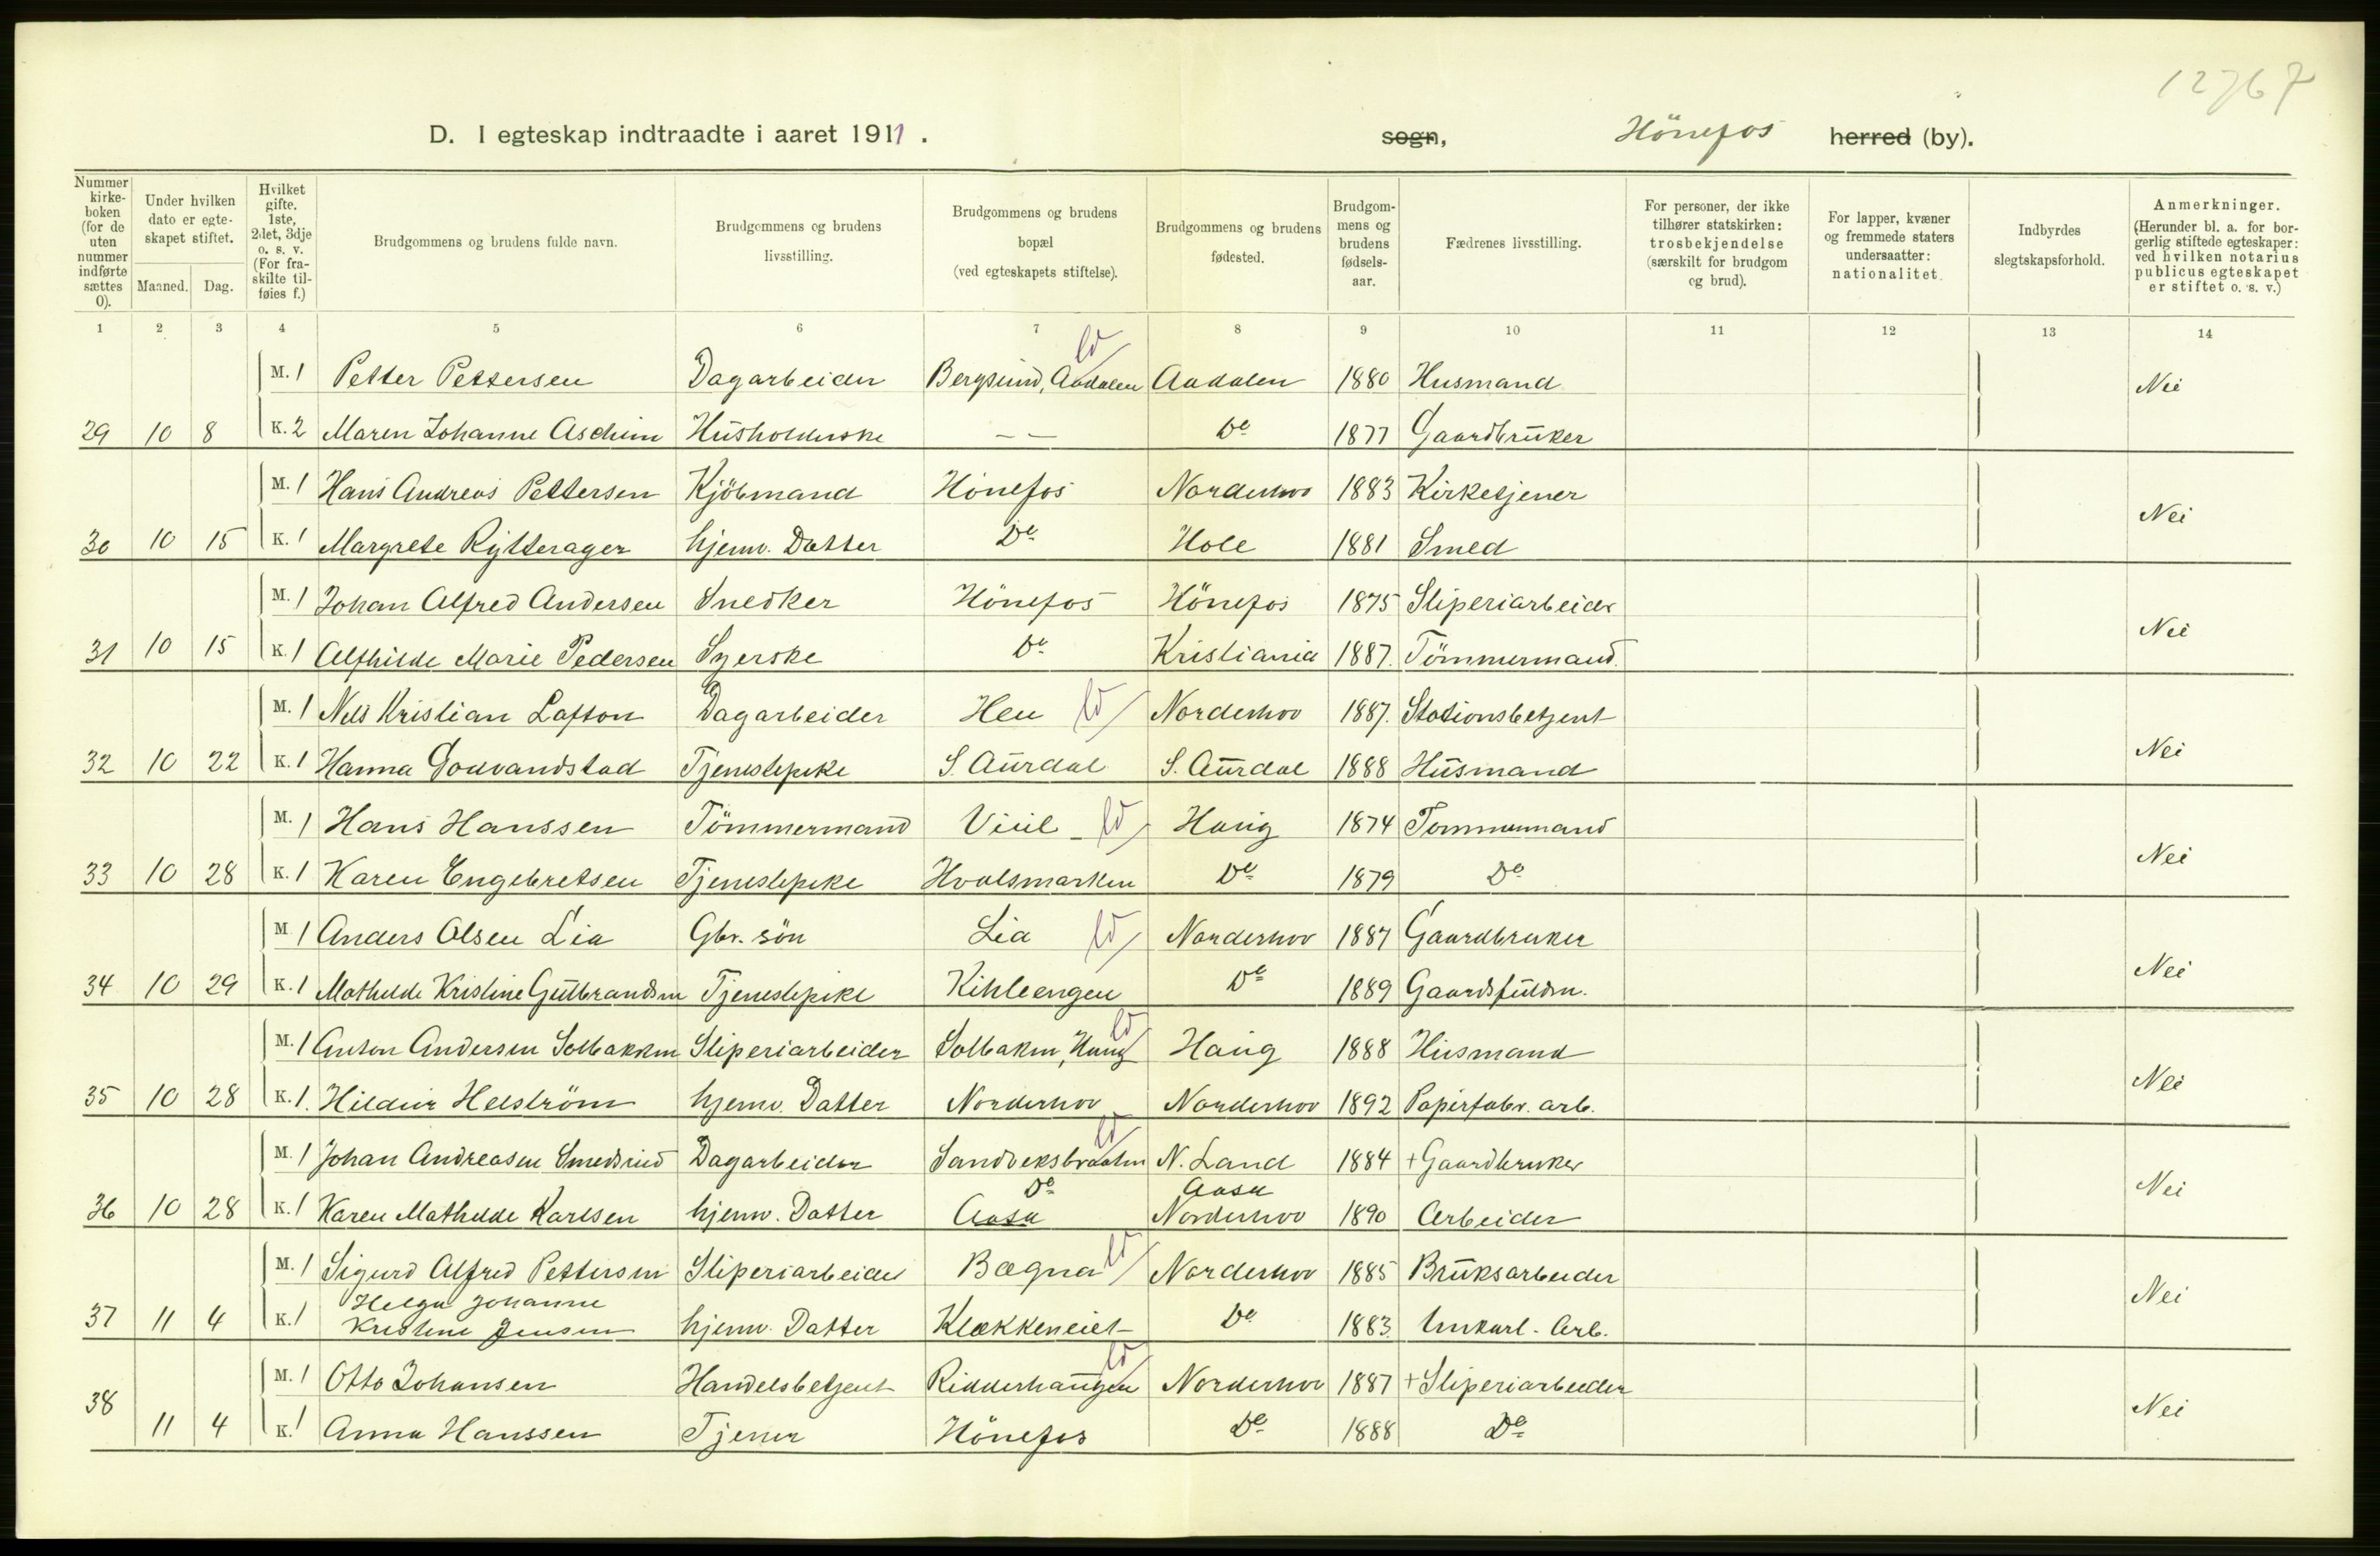 12767
D. I egteskap indtraadte i aaret 1911. sogn, Hönefos herred (by).
Nummer kirkeboken (for de uten nummer indførte sættes 0).
Under hvilken dato er egteskapet stiftet.
Maaned. Dag.
Hvilket gifte. 1ste, 2det, 3dje o. s. v. (For fraskilte tilføies f.)
Brudgommens og brudens fulde navn.
Brudgommens og brudens livsstilling.
Brudgommens og brudens bopæl (ved egteskapets stiftelse).
Brudgommens og brudens fødested.
Brudgommens og brudens fødselsaar.
Fædrenes livsstilling.
For personer, der ikke tilhører statskirken: trosbekjendelse (særskilt for brudgom og brud).
For lapper, kvæner og fremmede staters undersaatter: nationalitet.
Indbyrdes slegtskapsforhold.
Anmerkninger. (Herunder bl. a. for borgerlig stiftede egteskaper: ved hvilken notarius publicus egteskapet er stiftet o. s. v.)
1 2 3 4 5 6 7 8 9 10 11 12 13 14
M. 1 Petter Pettersen Dagarbeider Bergsund, Aadalen ld Aadalen 1880 Husmand Nei
29 10 8 K. 2 Maren Johanne Ascheim Husholderske — — Do 1877 Gaardbruker
M. 1 Hans Andreas Pettersen Kjöbmand Hönefos Norderhov 1883 Kirketjener Nei
30 10 15 K. 1 Margrete Rytterager hjemv. Datter Do Hole 1881 Smed
M. 1 Johan Alfred Andersen Snedker Hönefos Hönefos 1875 Sliperiarbeider Nei
31 10 15 K. 1 Alfhilde Marie Pedersen Syerske Do Kristiania 1887. Tömmermand.
M. 1 Nils Kristian Lafton Dagarbeider Hen ld Norderhov 1887. Stationsbetjent Nei
32 10 22 K. 1 Hanna Godvandstad Tjenestepike S. Aurdal S. Aurdal 1888 Husmand
M. 1 Hans Hanssen Tömmermand Viul ld Haug 1874 Tommermand Nei
33 10 28 K. 1 Karen Engebretsen Tjenestepike Hvalsmarken Do 1879 Do
M. 1 Anders Olsen Lia Gbr. sön Lia ld Norderhov 1887 Gaardbruker Nei
34 10 29 K. 1 Mathilde Kristine Gulbrandsen Tjenestepike Kihleengen Do 1889 Gaardsfuldm.
M. 1 Anton Andersen Solbakken Sliperiarbeider Solbakken, Haug ld Haug 1888 Husmand Nei
35 10 28 K. 1. Hildur Helström hjemv. Datter Norderhov Norderhov 1892 Papirfabr. arb.
M. 1 Johan Andreasen Smedsrud Dagarbeider Sandveksbraaten ld N. Land 1884 + Gaardbruker Nei
36 10 28 K. 1 Karen Mathilde Karlsen hjemv. Datter Do Aasa Aasa Norderhov 1890 Arbeider
M. 1 Sigurd Alfred Pettersen Sliperiarbeider Bægna ld Norderhov 1885 Bruksarbeider Nei
37 11 4 K. 1 Helga Johanne Kristine Jensen hjemv. Datter Klækkeneiet Do 1883 Arb.
M. 1 Otto Johansen Handelsbetjent Ridderhaugen ld Norderhov 1887 + Sliperiarbeider Nei
38 11 4 K. 1 Anna Hanssen Tjener Hönefos Do 1888 Do